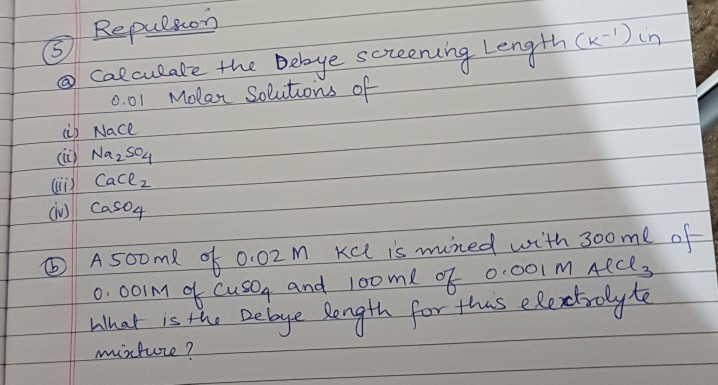 Repulsion
⑤
ⓐ Calculate the Debye screening Length (κ⁻¹) in
0.01 Molar Solutions of
(i) NaCl
(ii) Na₂SO₄
(iii) CaCl₂
(iv) CaSO₄
ⓑ A 500ml of 0.02 M KCl is mixed with 300ml of
0.001M of CuSO₄ and 100ml of 0.001M AlCl₃
What is the Debye length for this electrolyte
mixture?